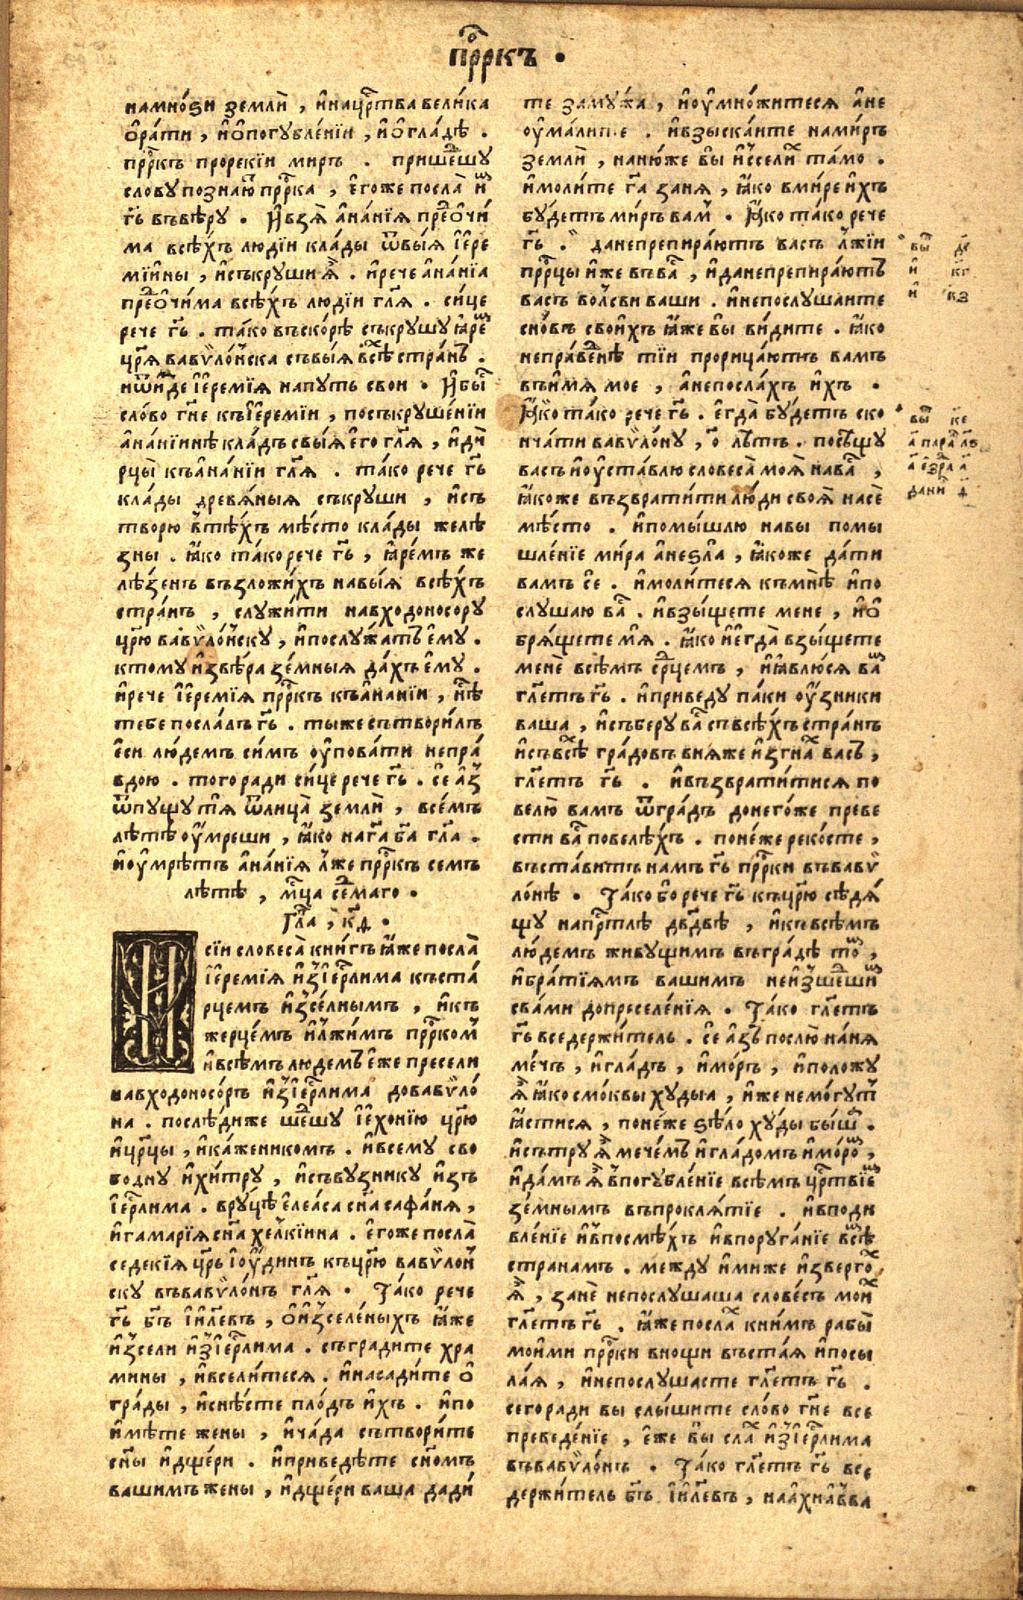 прⷪ҇ркъ •
намнѡ́ѕи землѝ , и҆нацр҇тва вели́ка
ѻ҆ра́ти , и҆ѻ҆погꙋбле́нїи , и҆ѻ҆гла́дѣ .
прⷪ҇ркъ прорекїи миръ . прише́шꙋ
словꙋ познаю́ прⷪ҇рка , е҆гоже посла̀
гь҃ въвѣ́рꙋ . И҆взѧ̀ а҆на́нїѧ прⷣеѻ҆чи́
ма всѣ́хъ людїи кла́ды ѿвы́ѧ і҆ере
мі́ины , и҆съкрꙋши ѧ҆̀ . и҆рече а҆на́нїа
прⷣеѻ҆чи́ма всѣ́хъ людїи гл҃ѧ . си́це
рече гь҃ . та́ко въско́рѣ съкрꙋшꙋ ꙗ҆ре́
цр҃ѧ вавѷло́ньска съвы́ѧ всѣ̀ стра́нъ .
иѿи́де і҆еремі́ѧ напꙋть свои . И҆бы́
сло́во гн҃е къі҆еремі́и , посъкрꙋше́нїи
а҆на́нїинѣ кла́дъ свы́ѧ е҆го гл҃ѧ , и҆дѝ
рцы̀ къа҆на́нїи гл҃ѧ . та́ко рече гь҃
кла́ды древѧ́ныѧ съкрꙋши , и҆съ
творю в̾тѣ́хъ мѣ́сто кла́ды желѣ
зны . ꙗ҆́ко та́ко рече гь҃ , ꙗ҆ре́мъ же
лѣ́зенъ възложи́хъ навы́ѧ всѣ́хъ
стра́нъ , слꙋжи́ти навходоносорꙋ
цр҃ю вавѷло́ньскꙋ , и҆послꙋ́жатъ е҆мꙋ .
ктомꙋ и҆звѣ́ра зе́мныѧ да́хъ е҆мꙋ .
и҆рече і҆еремі́ѧ прⷪ҇ркъ къа҆на́нїи , нѣ́
тебе посла́лъ гь҃ . тыже сътвори́лъ
е҆си лю́демъ си́мъ ᲂу҆пова́ти непра́
вдою . того ради си́це рече гь҃ . се а҆́зъ
ѿпꙋщꙋ тѧ ѿлица̀ землѝ , все́мъ
лѣ́тѣ ᲂу҆́мреши , ꙗ҆́ко наг҃а ба҃ гл҃а .
и҆ᲂу҆мрѣ́тъ а҆на́нїѧ лже прⷪ҇ркъ семъ
лѣ́тѣ , мцⷭ҇а се́дмаго .
Гла , кд҃ .
Исїи словеса̀ кни́гъ ꙗ҆́же посла̀
і҆еремі́ѧ и҆зі҆ерⷭ҇лима къста́
рцемъ и҆зсе́лнымъ , и҆къ
жерце́мъ и҆лжи́мъ прⷪ҇ркомъ
и҆все́мъ лю́демъ е҆́же пресели
навходоносо́ръ и҆зі҆ерⷭ҇лима довавѷло́
на . послѣ́диже ше́дшꙋ і҆ехонїю цр҃ю
и҆цр҃цы , и҆ка́женикомъ . и҆всемꙋ сво
боднꙋ и҆хи́трꙋ , и҆съвꙋзникꙋ и҆зъ
і҆ерⷭ҇лима . врꙋцѣ е҆леа́са сн҃а сафа́нѧ ,
и҆гамарїѧ сн҃а хел̾кїина . е҆гоже посла̀
седекїѧ цр҃ь і҆ᲂу́динъ къцр҃ю вавѷлонь
скꙋ въвавѷло́нъ гл҃ѧ . Та́ко рече
гь҃ бъ҃ і҆и҃левъ , ѻ҆и҆зселе́ныхъ ꙗ҆́же
и҆зсели и҆зі҆ерⷭ҇лима . съградите хра
мины , и҆всели́тесѧ . и҆насади́те ѻ҆
гра́ды , и҆снѣ́сте пло́дъ и҆́хъ . и҆по
и҆мѣ́те жены , и҆ча́да сътвори́те
сн҃ы и҆дще́ри . и҆приведѣ́те сн҃омъ
вашимъ жены , и҆дще́ри ваша дади́
те замꙋжа , и҆ᲂу҆мно́житесѧ а҆не
ᲂу҆ма́лите . и҆взыска́ите нами́ръ
землѝ , наню́же вы и҆зсели́хъ та́мо .
и҆моли́те га҃ занѧ , ꙗ҆́ко вмире и҆́хъ
бꙋ́детъ ми́ръ вам̾ . Ꙗ҆́ко та́ко рече
гь҃ . данепрепира́ютъ васъ лжїи
прⷪ҇рцы и҆́же въва , и҆данепрепира́ютъ
васъ вол̾сви ваши . и҆непослꙋшаите
сно́въ свои́хъ ꙗ҆́же вы ви́дите . ꙗ҆́ко
непра́веднѣ тїи прорица́ютъ вамъ
въи́мѧ мое , а҆непосла́хъ и҆́хъ .
Ꙗ҆́ко та́ко рече гь҃ . е҆гда̀ бꙋ́детъ ско
нча́ти вавѷло́нꙋ , о҃ лѣтъ . посѣщꙋ
васъ и҆ᲂу҆ста́влю словеса̀ моѧ̀ нава ,
ꙗ҆́коже възврати́ти лю́ди своѧ̀ насѐ
мѣ́сто . и҆помы́шлю навы помы
шле́нїе ми́ра а҆неѕла , ꙗ҆́коже да́ти
вамъ се . и҆моли́тесѧ къмнѣ̀ и҆по
слꙋшаю ва . и҆взы́щете мене , и҆ѻ҆
брѧ́щете мѧ . ꙗ҆́ко и҆е҆гда̀ взы́щете
менѐ всѣмъ срⷣцемъ , и҆ꙗ҆влюсѧ ва
гл҃етъ гь҃ . и҆приведꙋ паки ᲂу҆́зники
ваша , и҆съберꙋ ва съвсѣ́хъ стра́нъ
и҆съвсѣ̀ гра́довъ внѧже и҆згна васъ ,
гл҃етъ гь҃ . и҆възврати́тисѧ по
велю̀ вамъ ѿгра́дъ донего́же преве
сти ва повелѣ́хъ . поне́же реко́сте ,
въста́витъ намъ гь҃ прⷪ҇рки въвавѷ
ло́нѣ . Та́ко бо рече гь҃ къцр҃ю сѣдѧ́
щꙋ напрⷭ҇тлѣ дв҃двѣ , и҆къвсѣ́мъ
лю́демъ живꙋщимъ въгра́дѣ то ,
и҆бра́тїѧмъ вашимъ неи҆зше́дши
сва́ми допреселе́нїѧ . Та́ко гл҃етъ
гь҃ вседержи́тель . се а҆́зъ послю̀ нанѧ
ме́чъ , и҆гла́дъ , и҆мо́ръ , и҆положꙋ
ѧ҆̀ ꙗ҆́ко смо́квы хꙋ́дыа , и҆же немо́гꙋт
ꙗ҆́стисѧ , поне́же ѕѣ́ло хꙋ́ды бы́ша .
и҆сътрꙋ ѧ҆̀ мече́мъ и҆гла́домъ и҆мо́ро ,
и҆да́мъ ѧ҆̀ впогꙋбле́нїе всѣмъ црⷭ҇твїе
зе́мнымъ въпроклѧ́тїе . и҆вподи
вле́нїе и҆впосмѣ́хъ и҆впорꙋга́нїе всѣ
странамъ . междꙋ и́миже и҆зверго
ѧ҆̀ , занѐ непослꙋшаша слове́съ мои
гл҃етъ гь҃ . ꙗ҆́же посла кни́мъ рабы̀
мои́ми прⷪ҇рки внощи въста́ѧ и҆посы
ла́ѧ , и҆непослꙋшасте гл҃етъ гь҃ .
сегоради вы слы́шите сло́во гн҃е все
преведе́нїе , е҆́же вы сла и҆зі҆ерⷭ҇лима
въвавѷло́нъ . Та́ко гл҃етъ гь҃ все
держи́тель бъ҃ і҆и҃левъ , наа҆хиа́вва